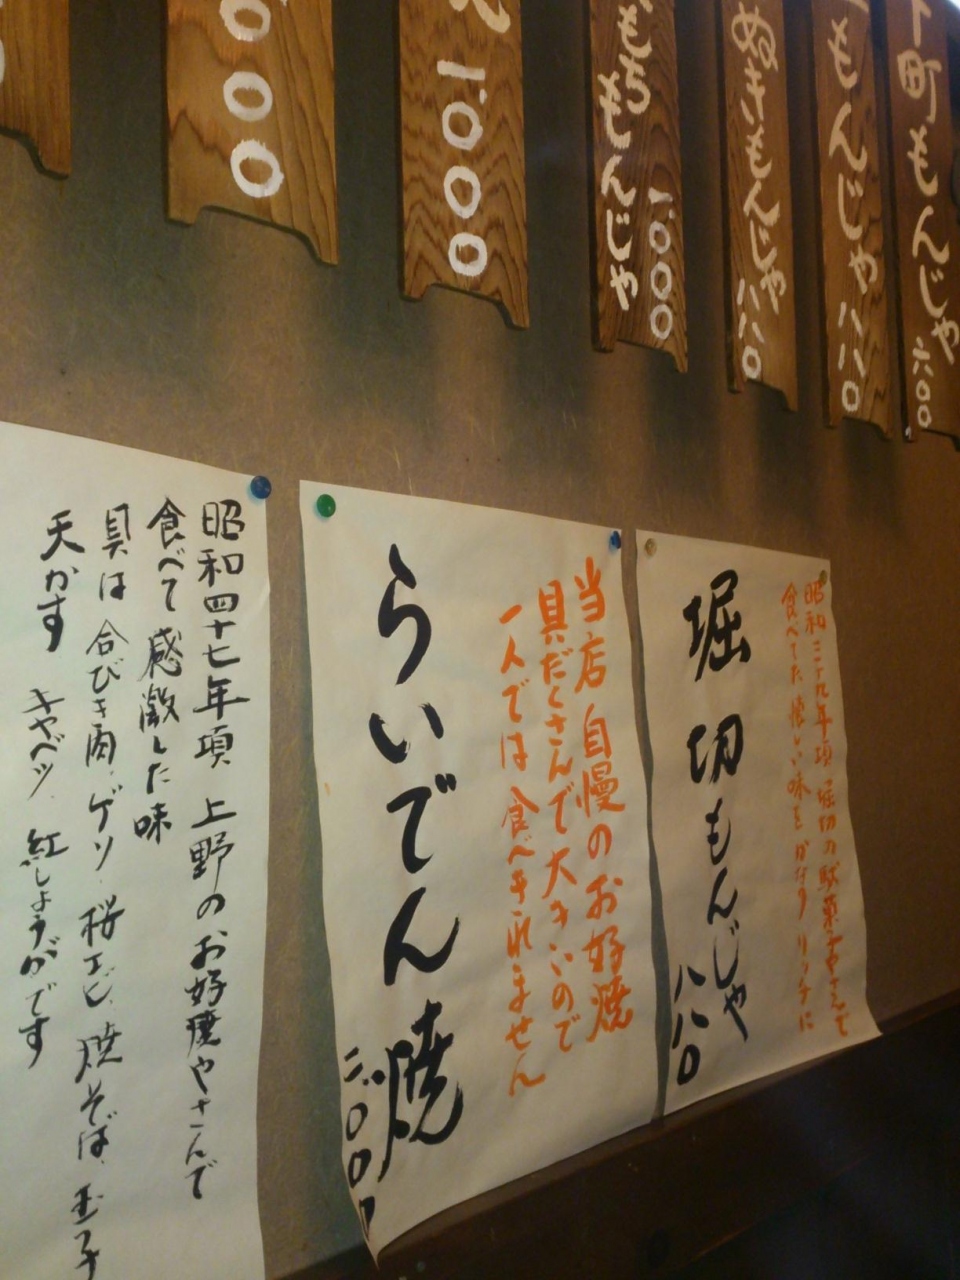 下町もんじゃ 六〇〇
もんじゃ 八八〇
ぬきもんじゃ 八八〇
もちもんじゃ 1.000
1.000
000
昭和二十九年項 堀切の駄菓子やさんで
食べてた懐しい味を
リッチに
堀切もんじゃ 八八〇
当店自慢のお好焼
具だくさんで大きいので
一人では食べきれません
らいでん焼
二.〇〇〇
昭和四十七年項 上野のお好焼やさんで
食べて感激した味
具は合びき肉、ゲソ、桜エビ、焼そば、玉子
天かす キャベツ、紅しょうがです